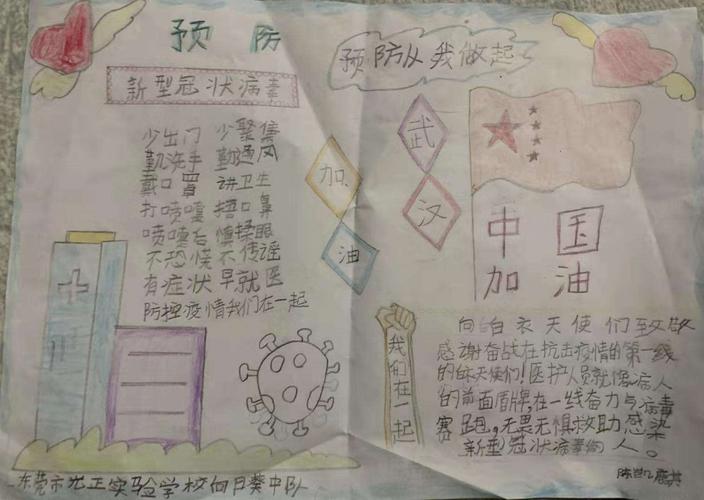 预防
新型冠状病毒
少出门 少聚集
勤洗手 勤通风
戴口罩 讲卫生
打喷嚏 捂口鼻
喷嚏后 慎揉眼
不恐慌 不传谣
有症状 早就医
防控疫情我们在一起
东莞市光正实验学校向日葵中队
预防从我做起
武
汉
加
油
中国
加油
我们在一起
向白衣天使们致敬
感谢奋战在抗击疫情的第一线
的白衣天使们！医护人员就像病人
的前面盾牌,在一线奋力与病毒
赛跑。无畏无惧救助感染
新型冠状病毒的人。